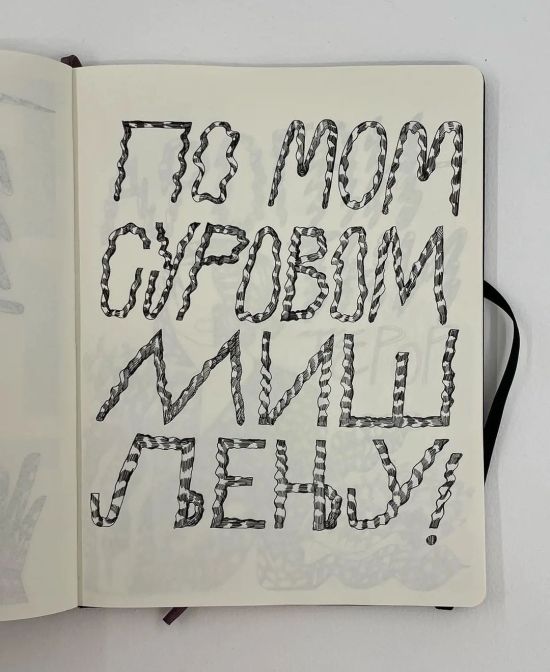 ПО МОМ
СУРОВОМ
МИШ
ЉЕЊУ!